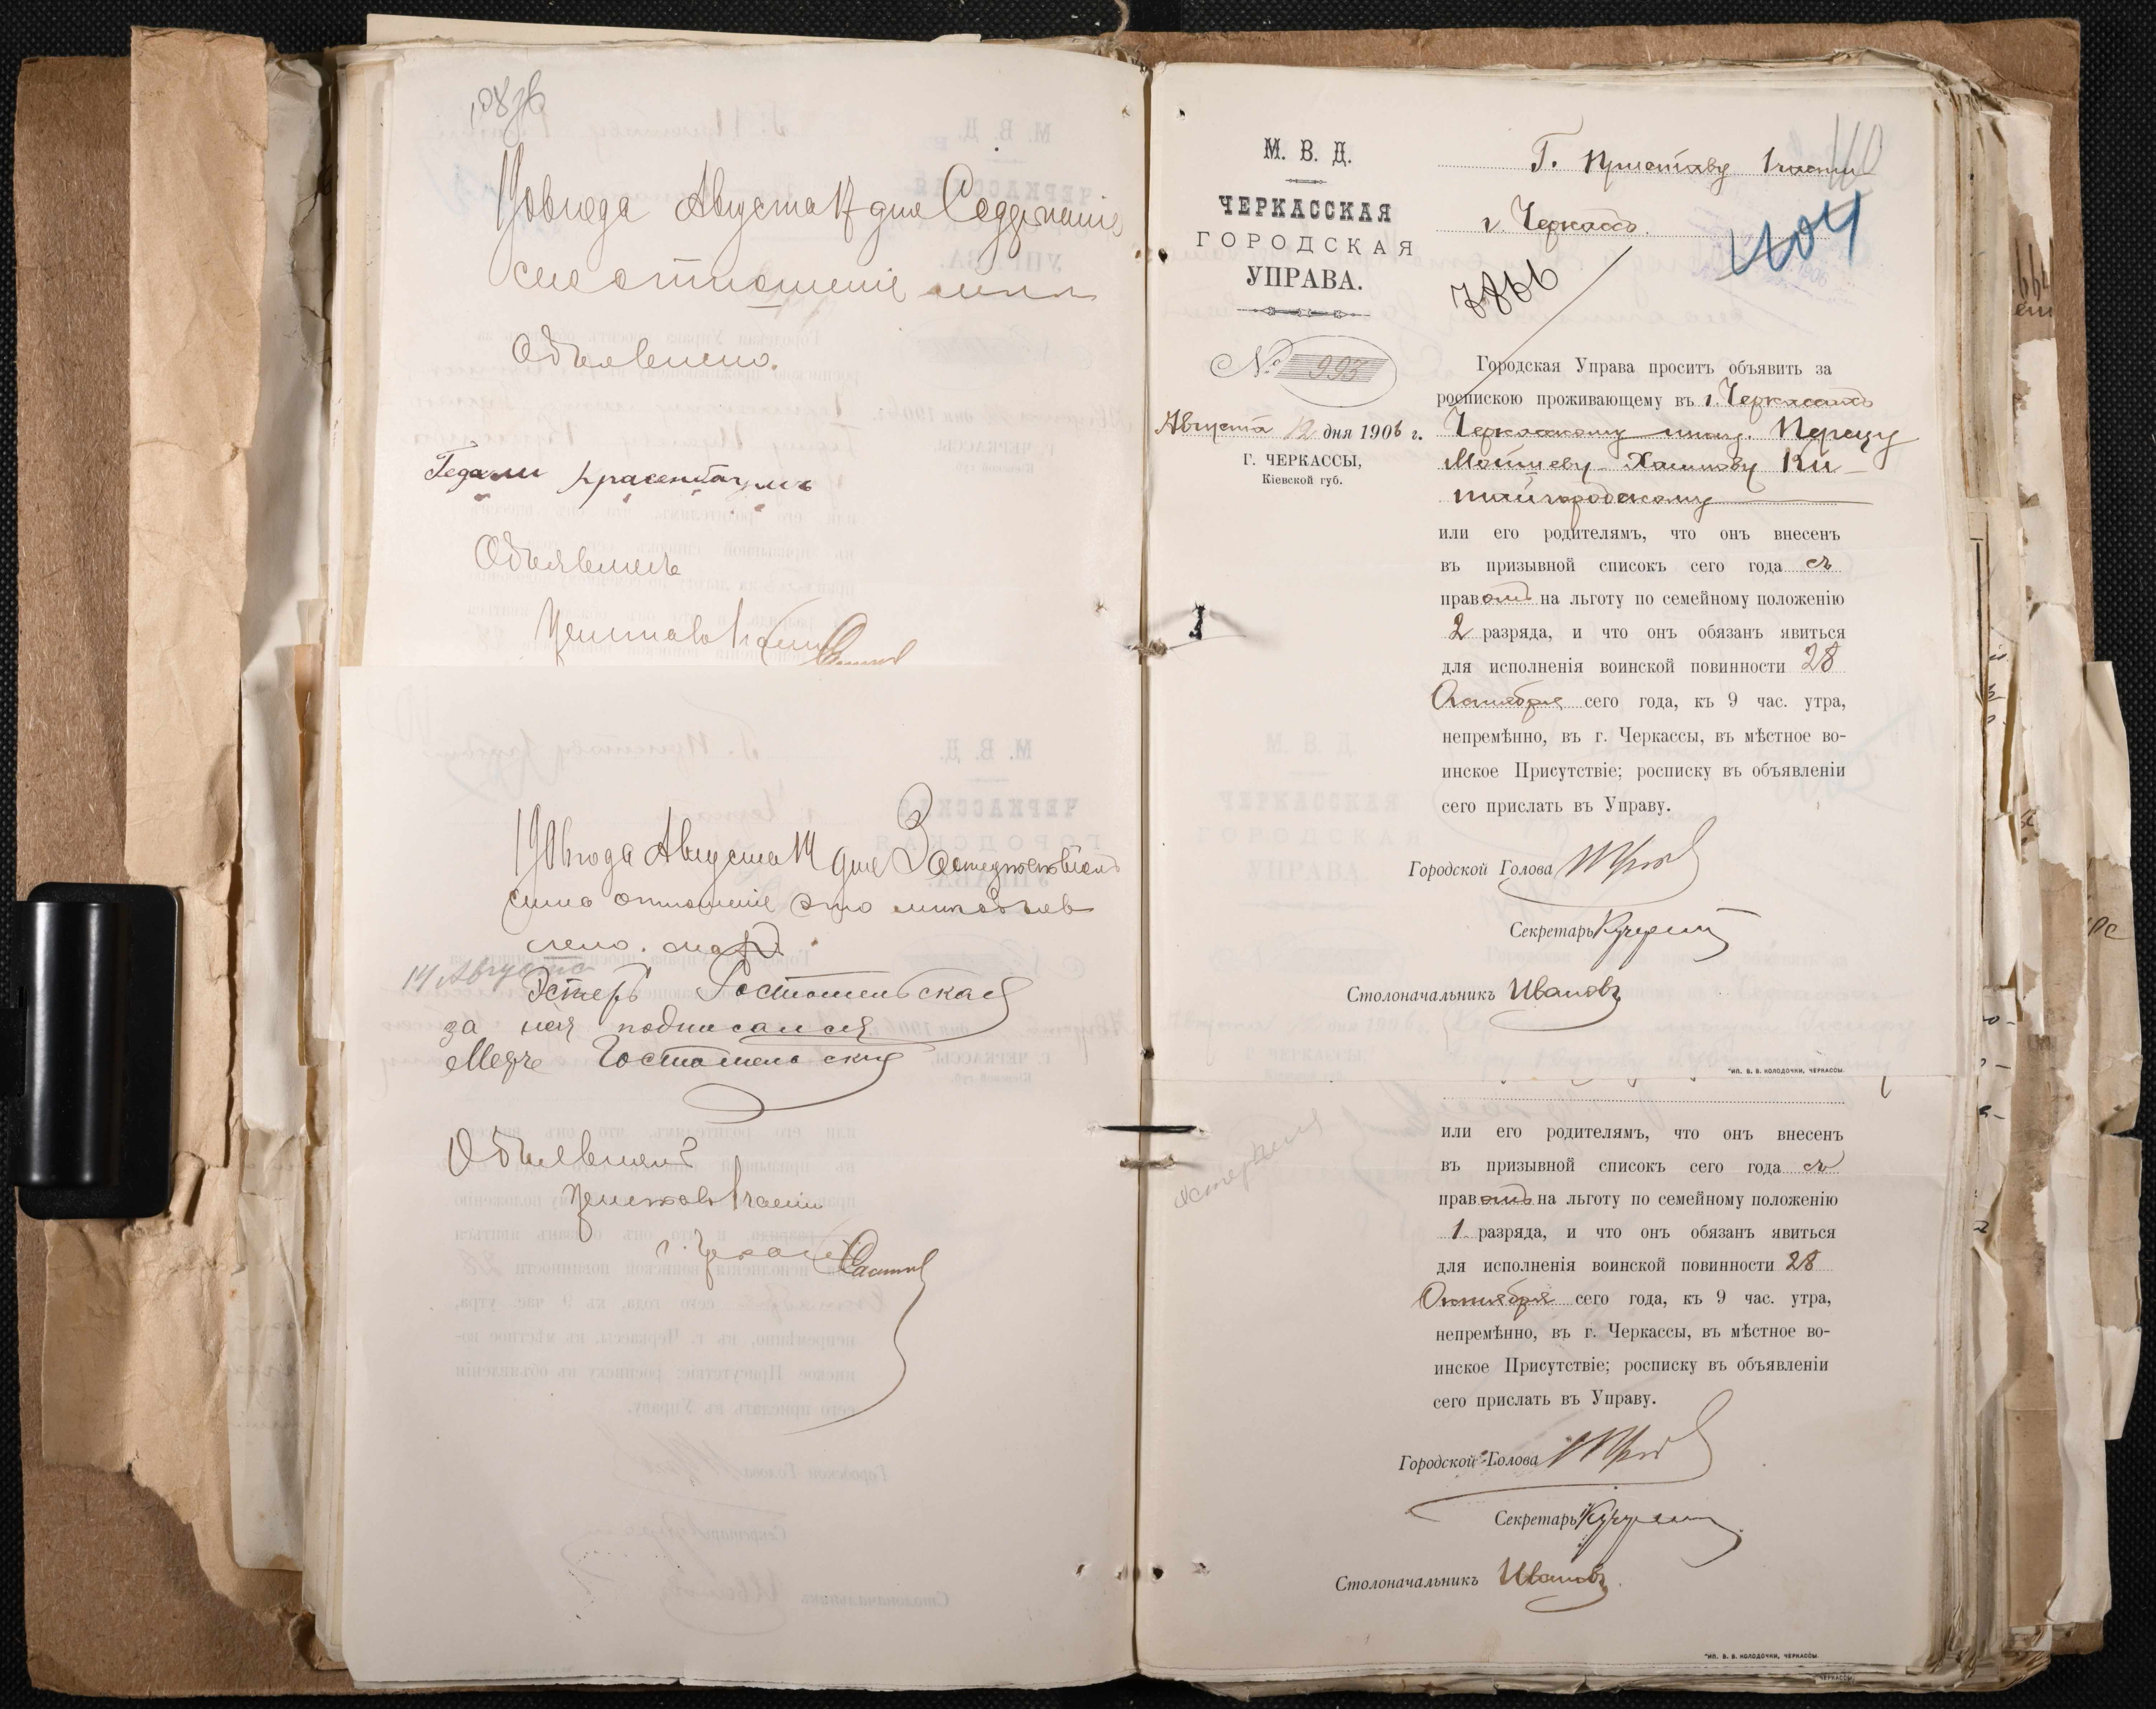 1906 года Августа 17 дня Содержаніе
сего отношеніе мнѣ
Объявлено.
Гедали Красенбаумъ
Объявилъ
Приставъ 1 части
1906 года Августа 14 дня
сего отношеніе что мнѣ объяв
лено.
14 Августа
Эстеръ Гостомельская
за нея подписался
Гостомельскій
Объявилъ
Приставъ 1 части
г. Черкассъ
110
Г. Приставу 1 части
г. Черкассъ.
404
7866
М. В. Д.
ЧЕРКАССКАЯ
ГОРОДСКАЯ
УПРАВА.
№ 993
Августа 12 дня 1906 г.
Г. ЧЕРКАССЫ,
Кіевской губ.
Городская Управа проситъ объявить за
роспискою проживающему въ г. Черкассахъ
Черкасскому мѣщ. Перецу
Мойшеву Хаимову Ки-
тайгородскому
или его родителямъ, что онъ внесенъ
въ призывной списокъ сего года съ
правомъ на льготу по семейному положенію
2 разряда, и что онъ обязанъ явиться
для исполненія воинской повинности 28
Октября сего года, къ 9 час. утра,
непремѣнно, въ г. Черкассы, въ мѣстное во-
инское Присутствіе; росписку въ объявленіи
сего прислать въ Управу.
Городской Голова
Секретарь
Столоначальникъ Ивановъ
ТИП. В. В. КОЛОДОЧКИ, ЧЕРКАССЫ.
или его родителямъ, что онъ внесенъ
въ призывной списокъ сего года съ
правомъ на льготу по семейному положенію
1 разряда, и что онъ обязанъ явиться
для исполненія воинской повинности 28
Октября сего года, къ 9 час. утра,
непремѣнно, въ г. Черкассы, въ мѣстное во-
инское Присутствіе; росписку въ объявленіи
сего прислать въ Управу.
Городской Голова
Секретарь
Столоначальникъ Ивановъ
ТИП. В. В. КОЛОДОЧКИ, ЧЕРКАССЫ
ЧЕРКАССЫ